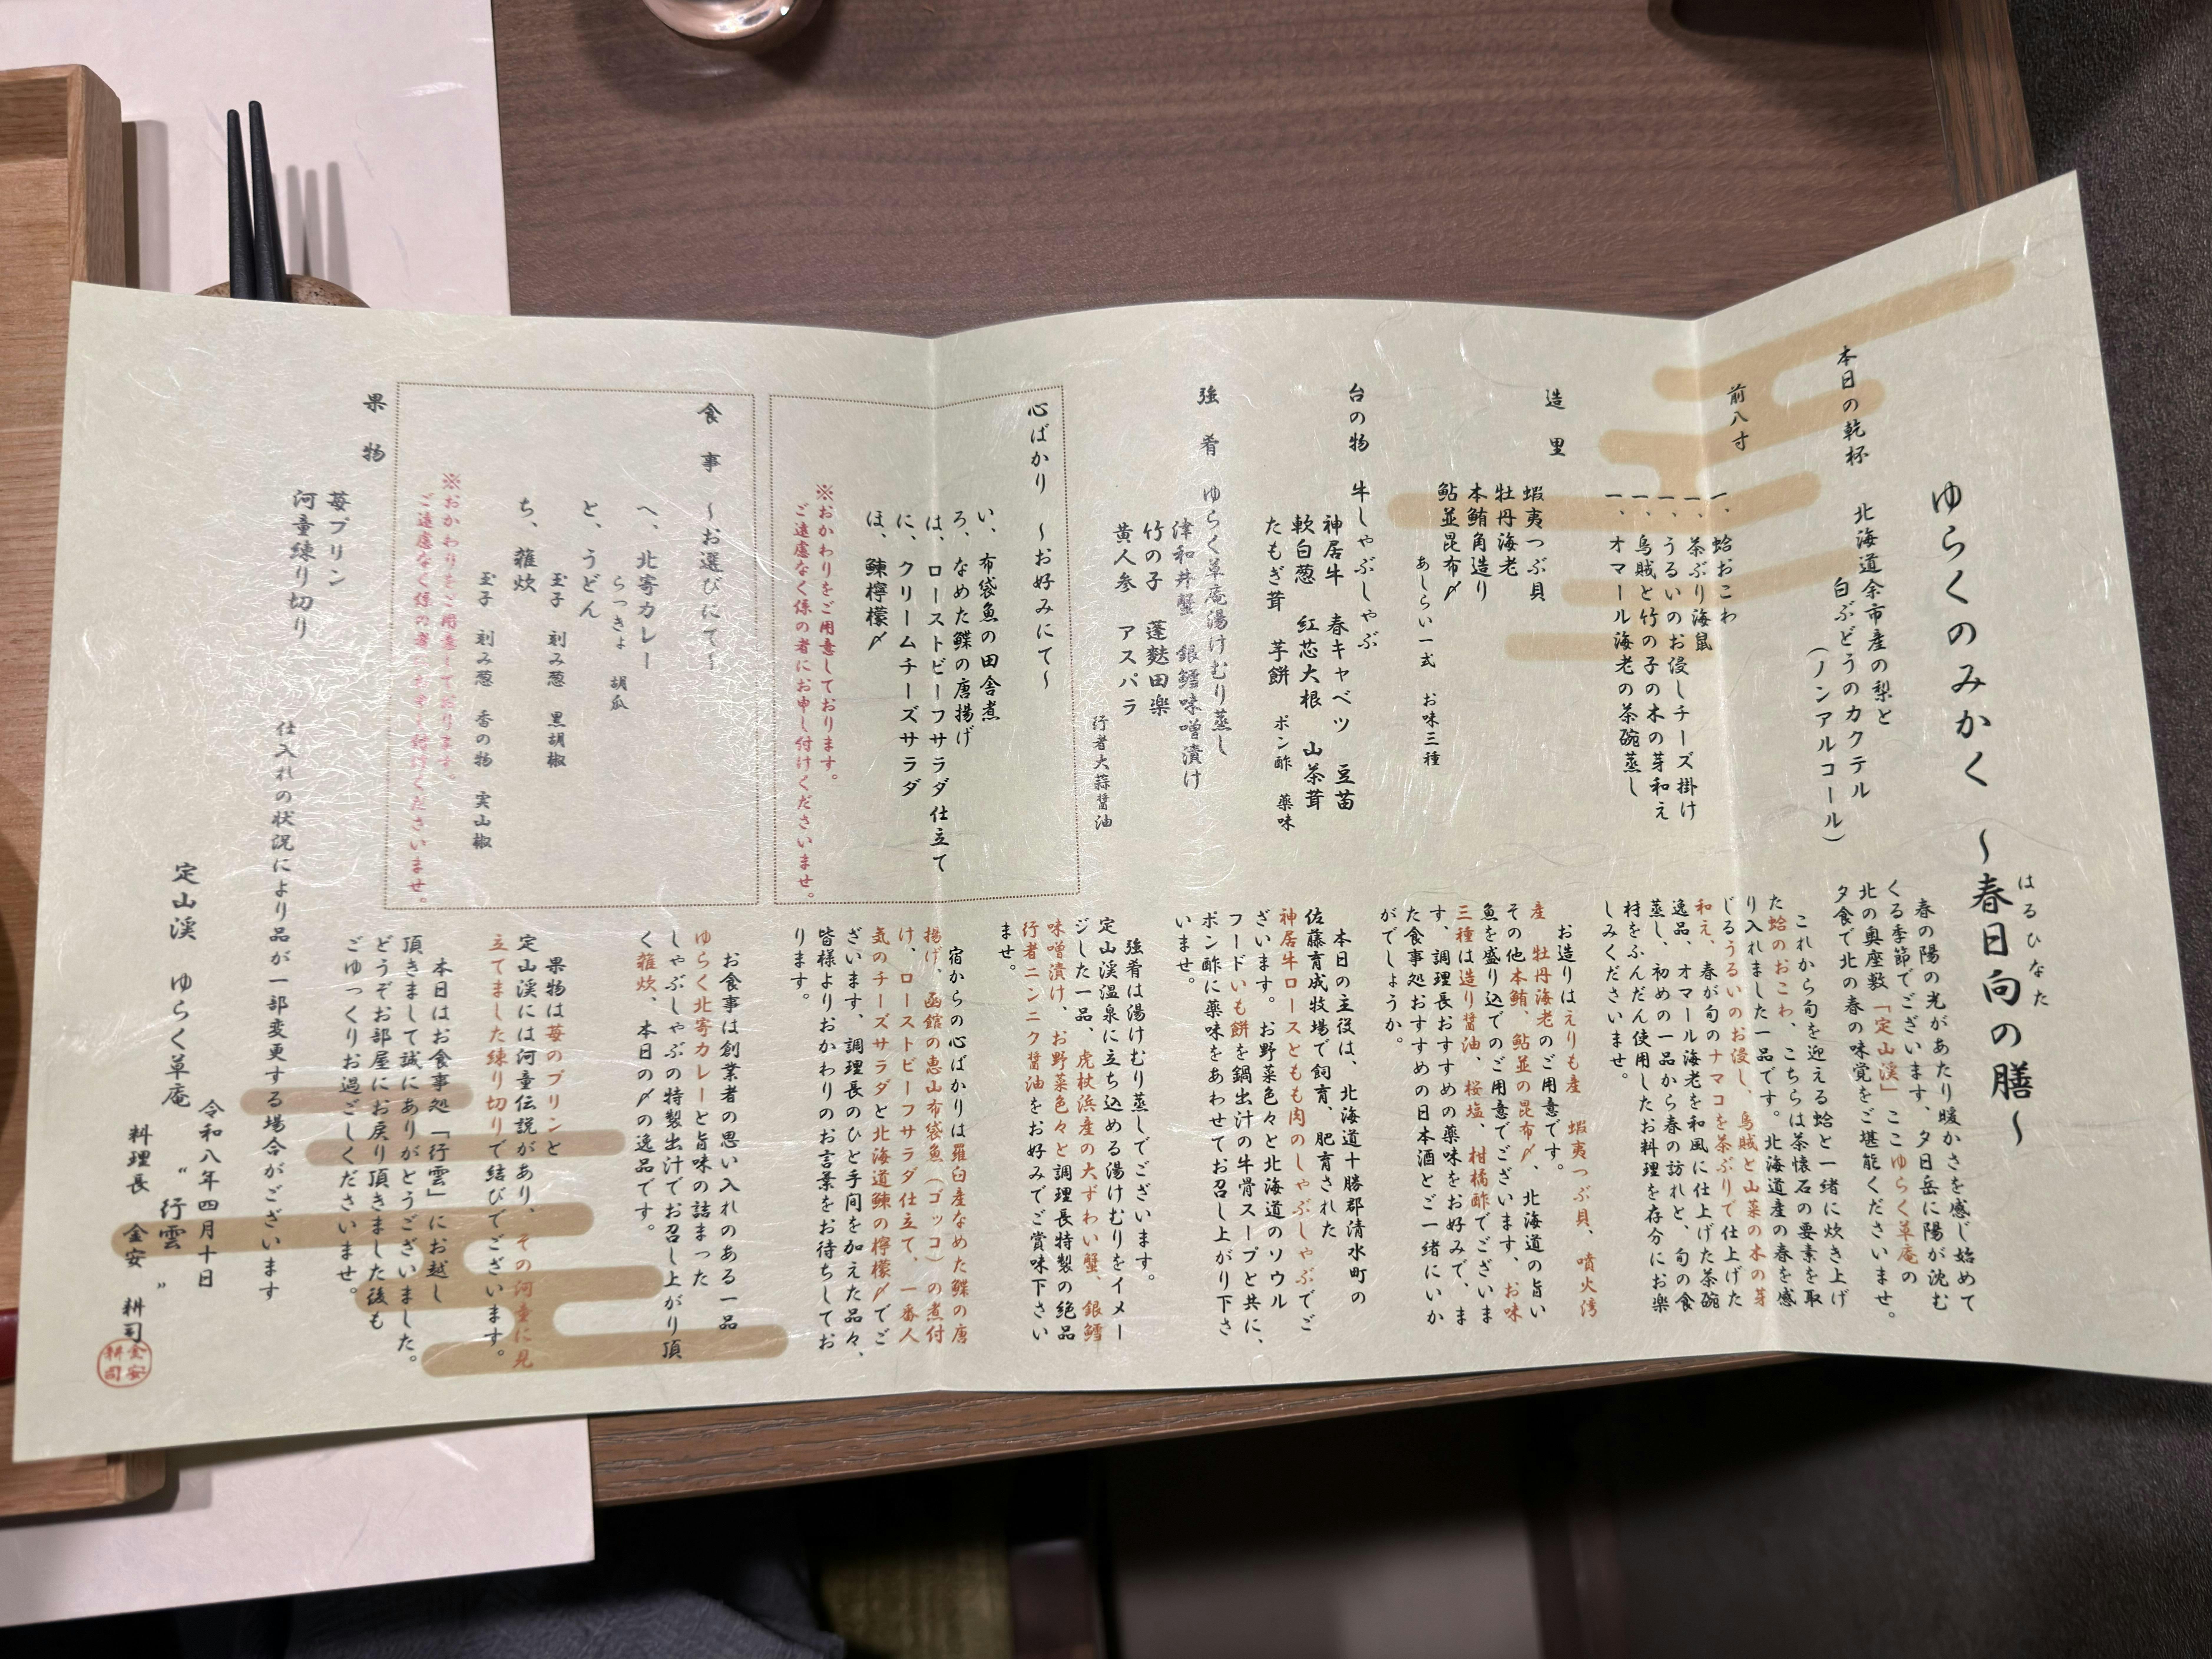 ゆらくのみかく 〜春日向の膳〜
はるひなた
本日の乾杯
北海道余市産の梨と
白ぶどうのカクテル
(ノンアルコール)
前八寸
一、蛤おこわ
一、茶ぶり海鼠
一、うるいのお浸しチーズ掛け
一、烏賊と竹の子の木の芽和え
一、オマール海老の茶碗蒸し
造里
蝦夷つぶ貝
牡丹海老
本鮪角造り
鮎並昆布〆
あしらい一式 お味三種
台の物 牛しゃぶしゃぶ
神居牛 春キャベツ 豆苗
軟白葱 紅芯大根 山茶茸
たもぎ茸 芋餅 ポン酢 薬味
強肴 ゆらく草庵湯けむり蒸し
津和井蟹 銀鱈味噌漬け
竹の子 蓬麩田楽
黄人参 アスパラ
行者大蒜醤油
心ばかり 〜お好みにて〜
い、布袋魚の田舎煮
ろ、なめた鰈の唐揚げ
は、ローストビーフサラダ仕立て
に、クリームチーズサラダ
ほ、鰊檸檬〆
※おかわりをご用意しております。
ご遠慮なく係の者にお申し付けくださいませ。
食事 〜お選びにて〜
へ、北寄カレー
らっきょ 胡瓜
と、うどん
玉子 刻み葱 黒胡椒
ち、雑炊
玉子 刻み葱 香の物 実山椒
※おかわりをご用意しております。
ご遠慮なく係の者にお申し付けくださいませ。
果物
苺プリン
河童練り切り
仕入れの状況により品が一部変更する場合がございます
春の陽の光があたり暖かさを感じ始めて
くる季節でございます、夕日岳に陽が沈む
北の奥座敷「定山渓」ここゆらく草庵の
夕食で北の春の味覚をご堪能くださいませ。
これから旬を迎える蛤と一緒に炊き上げ
た蛤のおこわ、こちらは茶懐石の要素を取
り入れました一品です。北海道産の春を感
じるうるいのお浸し、烏賊と山菜の木の芽
和え、春が旬のナマコを茶ぶりで仕上げた
逸品、オマール海老を和風に仕上げた茶碗
蒸し、初めの一品から春の訪れと、旬の食
材をふんだん使用したお料理を存分にお楽
しみくださいませ。
お造りはえりも産 蝦夷つぶ貝、噴火湾
産 牡丹海老のご用意です。
その他本鮪、鮎並の昆布〆、北海道の旨い
魚を盛り込でのご用意でございます、お味
三種は造り醤油、桜塩、柑橘酢でございま
す、調理長おすすめの薬味をお好みで、ま
た食事処おすすめの日本酒とご一緒にいか
がでしょうか。
本日の主役は、北海道十勝郡清水町の
佐藤育成牧場で飼育、肥育された
神居牛ロースともも肉のしゃぶしゃぶでご
ざいます。お野菜色々と北海道のソウル
フードいも餅を鍋出汁の牛骨スープと共に、
ポン酢に薬味をあわせてお召し上がり下さ
いませ。
強肴は湯けむり蒸しでございます。
定山渓温泉に立ち込める湯けむりをイメー
ジした一品、虎杖浜産の大ずわい蟹、銀鱈
味噌漬け、お野菜色々と調理長特製の絶品
行者ニンニク醤油をお好みでご賞味下さい
ませ。
宿からの心ばかりは羅臼産なめた鰈の唐
揚げ、函館の恵山布袋魚(ゴッコ)の煮付
け、ローストビーフサラダ仕立て、一番人
気のチーズサラダと北海道鰊の檸檬〆でご
ざいます、調理長のひと手間を加えた品々、
皆様よりおかわりのお言葉をお待ちしてお
ります。
お食事は創業者の思い入れのある一品
ゆらく北寄カレーと旨味の詰まった
しゃぶしゃぶの特製出汁でお召し上がり頂
く雑炊、本日の〆の逸品です。
果物は苺のプリンと
定山渓には河童伝説があり、その河童に見
立てました練り切りで結びでございます。
本日はお食事処「行雲」にお越し
頂きまして誠にありがとうございました。
どうぞお部屋にお戻り頂きました後も
ごゆっくりお過ごしくださいませ。
令和八年四月十日
定山渓 ゆらく草庵 “行雲”
料理長 金安 耕司
金安
耕司